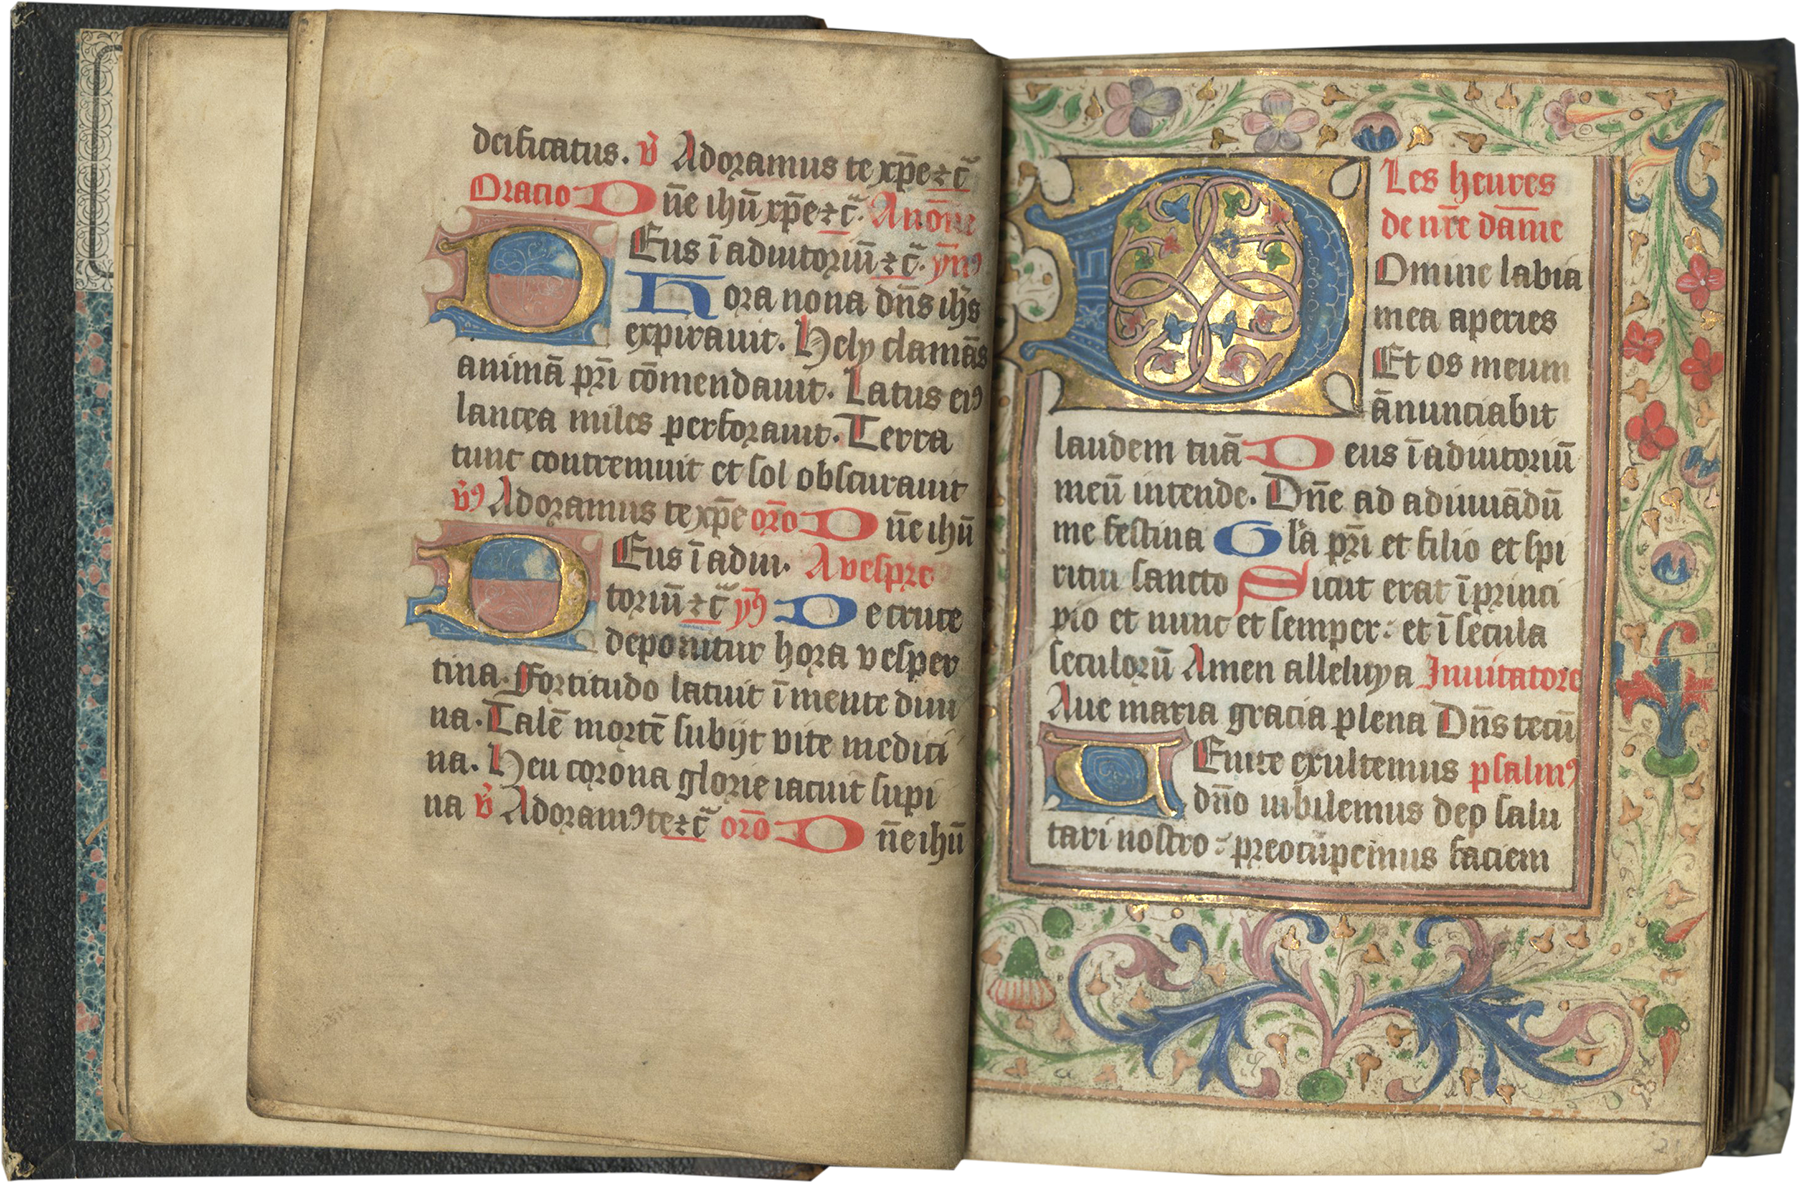 dcificatus. v̄ Adoramus te xp̄e ⁊c̄
Oratio Dn̄e ihū xp̄e ⁊c̄. A nōne
DEus ī adiutoriū ⁊c̄. ymꝰ
Hora nona dn̄s ihs
expirauit. Hely clamās
animā pr̄i cōmendauit. Latus eiꝰ
lancea miles perforauit. Terra
tunc contremuit et sol obscurauit
v̄ꝰ Adoramus te xp̄e or̄o Dn̄e ihū
DEus ī adiu. A vespre
toriū ⁊c̄ ym̄ De cruce
deponitur hora vesper
tina. Fortitudo latuit ī mente diui
na. Talē mortē subijt vite medici
na. Heu corona glorie iacuit supi
na v̄ Adoramꝰ te ⁊c̄ orō Dn̄e ihū
Les heures
de nr̄e dam̄e
Domine labia
mea aperies
Et os meum
ān̄unciabit
laudem tuā Deus ī adiutoriū
meū intende. Dn̄e ad adiuuādū
me festina Gl̄a pr̄i et filio et spi
ritui sancto Sicut erat ī princi
pio et nunc et semper: et ī secula
seculorū Amen alleluya Inuitatore
Aue maria gracia plena Dn̄s tecū
UEnite exultemus psalmꝰ
dn̄o iubilemus deo salu
tari nostro: preocūpemus faciem